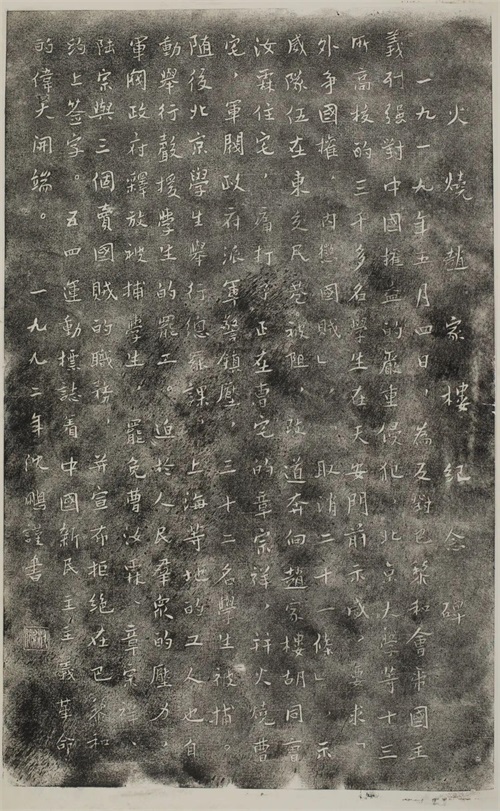 火燒趙家樓紀念碑
一九一九年五月四日，為反對巴黎和會帝國主
義列强對中國權益的嚴重侵犯，北京大學等十三
所高校的三千多名學生在天安門前示威，要求「
外争國權，内懲國賊」，「取消二十一條」，示
威隊伍在東交民巷被阻，改道奔向趙家樓胡同曹
汝霖住宅，痛打了正在曹宅的章宗祥，并火燒曹
宅，軍閥政府派軍警鎮壓，三十二名學生被捕。
随後北京學生舉行總罷課，上海等地的工人也自
動舉行聲援學生的罷工。迫於人民羣衆的壓力，
軍閥政府釋放被捕學生，罷免曹汝霖、章宗祥、
陸宗輿三個賣國賊的職務，并宣布拒絶在巴黎和
約上簽字。五四運動標誌着中國新民主主義革命
的偉大開端。 一九九二年沈鵬謹書